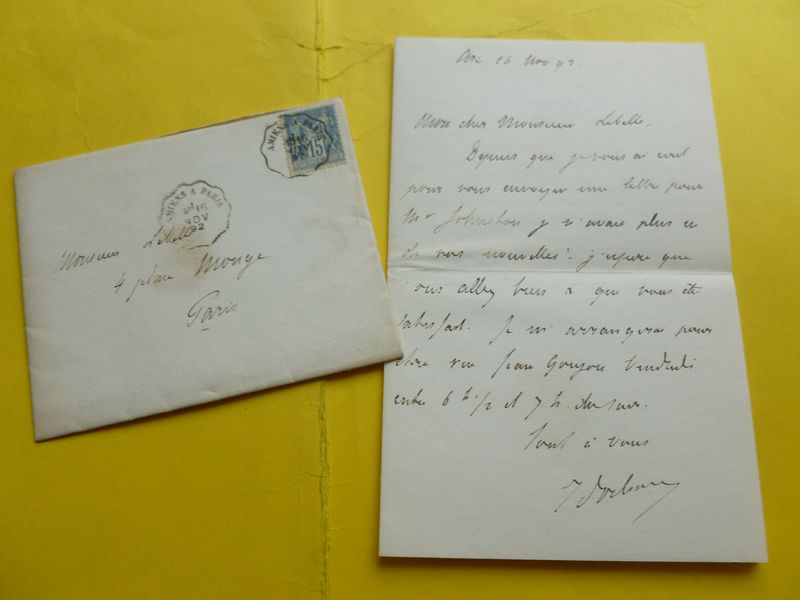 AMIENS A PARIS
15
AMIENS A PARIS
16
NOV
92
Monsieur Lebelle
4 place Monge
Paris
16 Nov 92
Mon cher Monsieur Lebelle,
Depuis que je vous ai écrit
pour vous envoyer une lettre pour
Mr Johnston je n'avais plus eu
de vos nouvelles. j'espère que
vous allez bien & que vous êtes
satisfait. Je m'arrangerai pour
être rue Jean Goujon Vendredi
entre 6 h 1/2 et 7 h. du soir.
Tout à vous